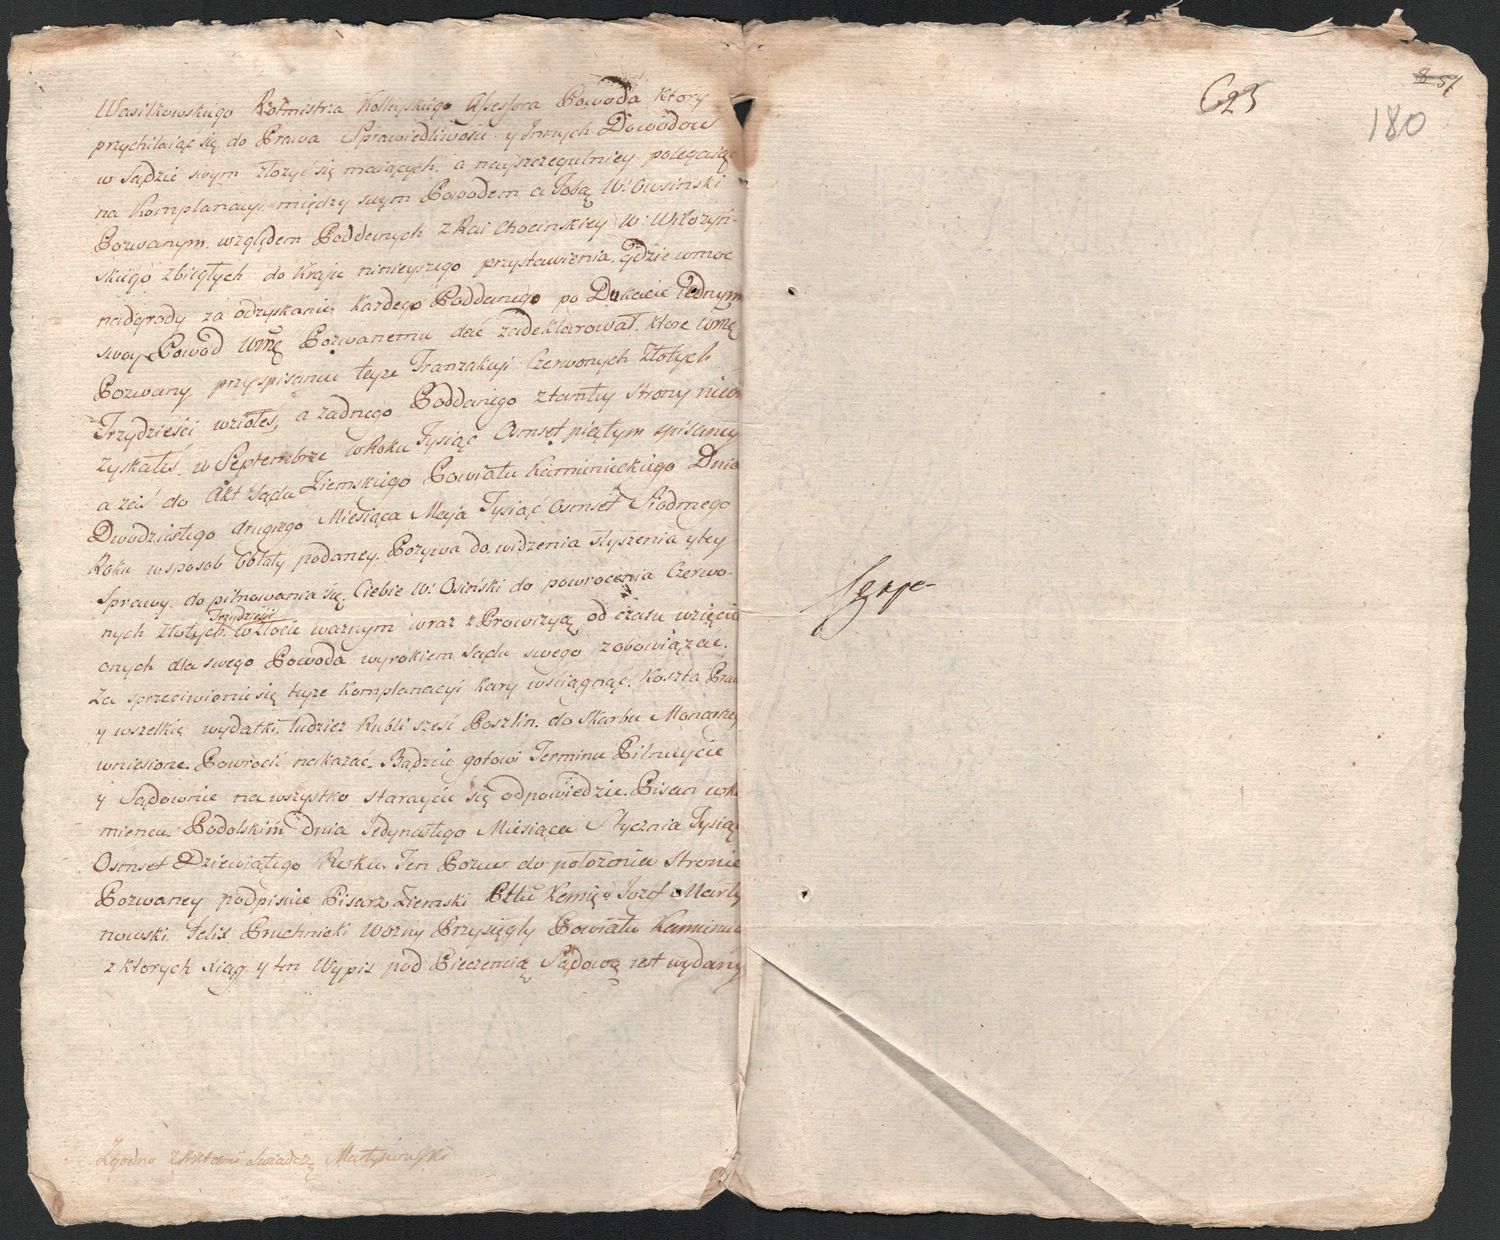 Wasilkowskiego Rotmistrza Kollegskiego Assessora Powoda Ktory
przychilaiąc się do Prawa Sprawiedliwości y Innych Dowodow
w Sądzie swym złożyć się maiących, a nayszczegulniey polegaiąc
na Komplanacyi między swym Powodem a Tobą W: Owsinski
Pozwanym względem Poddanych z Rai Chocinskiey W:
skiego zbiegłych do Kraju ninieyszego przystawienia, gdzie wmoc
nadgrody za odzyskanie Każdego Poddanego po Dukacie Jednym
swoy Powod Wmę Pozwanemu dać zadeklarował, ktore Wmę
Pozwany przyspisaniu teyże Tranzakcyi Czerwonych Złotych
Trzydzieści wziołeś, a żadnego Poddanego ztamtey Strony nieo
zyskałeś, w Septembrze w Roku Tysiąc Osmset piątym spisaney
a zaś do Akt Sądu Ziemskiego Powiatu Kaminieckiego Dnia
Dwudziestego drugiego Miesiąca Maja Tysiąc Osmset Siodmego
Roku w sposob Oblaty podaney. Pozywa do widzenia słyszenia y tey
Sprawy do pilnowania się. Ciebie W: Osinski do powrocenia Czerwo-
Trzydziesi
nych Złotych w złocie ważnym wraz z Prowizyą od czasu wzięcia
onych dla swego Powoda wyrokiem Sądu swego zobowiązać.
Za sprzeciwienie się teyże Komplanacyi kary wściągnąć. Koszta Praw
y wszelkie wydatki tudzież Rubli sześć Poszlin do Skarbu Monarszey
wniesione Powrocić nakazać. Bądźcie gotowi Terminu Pilnuycie
y Sądownie na wszystko staraycie się odpowiedzie. Pisan w Ka
miencu Podolskim dnia Jedynastego Miesiąca Stycznia Tysiąc
Osmset Dziewiątego Roku. Ten Pozew do położenia Stronie
Pozwaney podpisuie Pisarz Ziemski Pttu Kamię: Jozef Marty
nowski. Felix Pruchnicki Wozny Przysięgły Powiatu Kaminie
z ktorych xiąg y ten Wypis pod Pieczencią Sądową iest wydany
Zgodno z Aktami swiadczę Martynowski
8 51
623
180